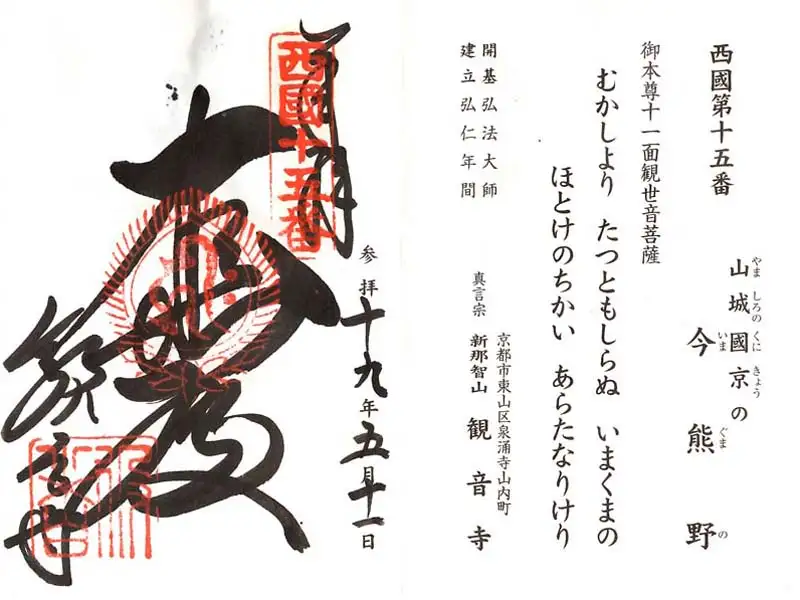 西國第十五番
やましろのくにきょう
山城國京の
いまぐまの
今熊野
御本尊十一面観世音菩薩
むかしより たつともしらぬ いまくまの
ほとけのちかい あらたなりけり
開基弘法大師
建立弘仁年間
京都市東山区泉涌寺山内町
真言宗 新那智山 観音寺
参拝十九年五月十一日
西國十五番